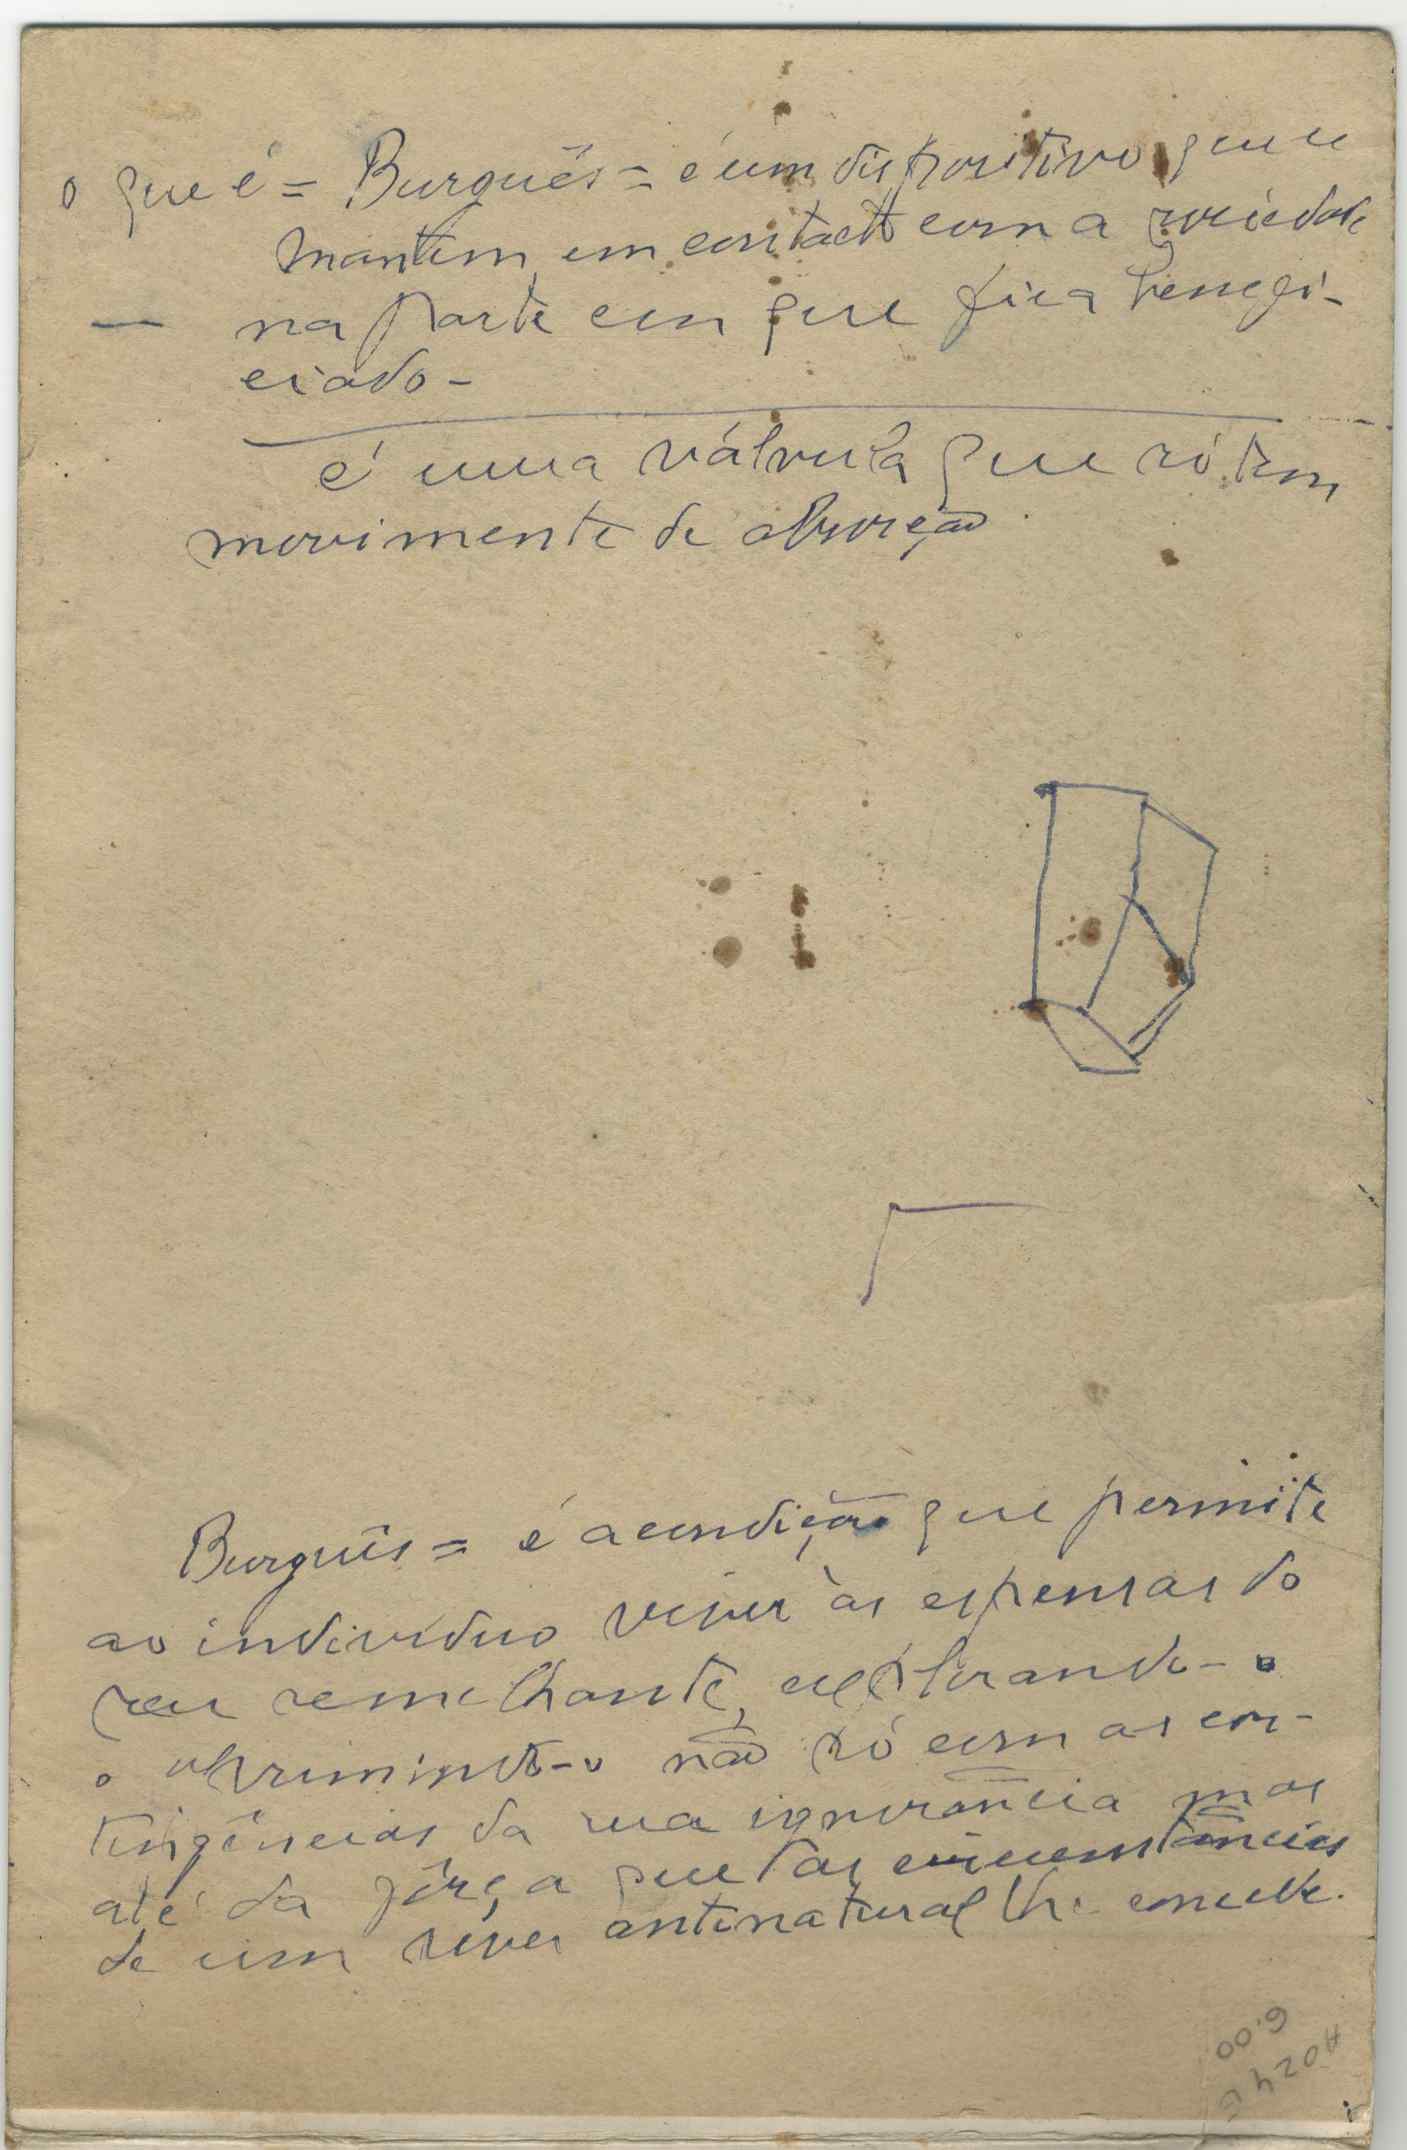 o que é = Burguês = é um dispositivo que se
mantem em contacto com a sociedade
— na parte em que fica benefi-
ciado -
é uma válvula que só tem
movimento de absorção
Burguês = é a condição que permite
ao individuo viver às espensas do
seu semelhante, explorando-o
e oprimindo-o não só com as con-
tingências da sua ignorância mas
até da fôrça que as circunstâncias
de um viver antinatural lhe concede.
6.00
A0245